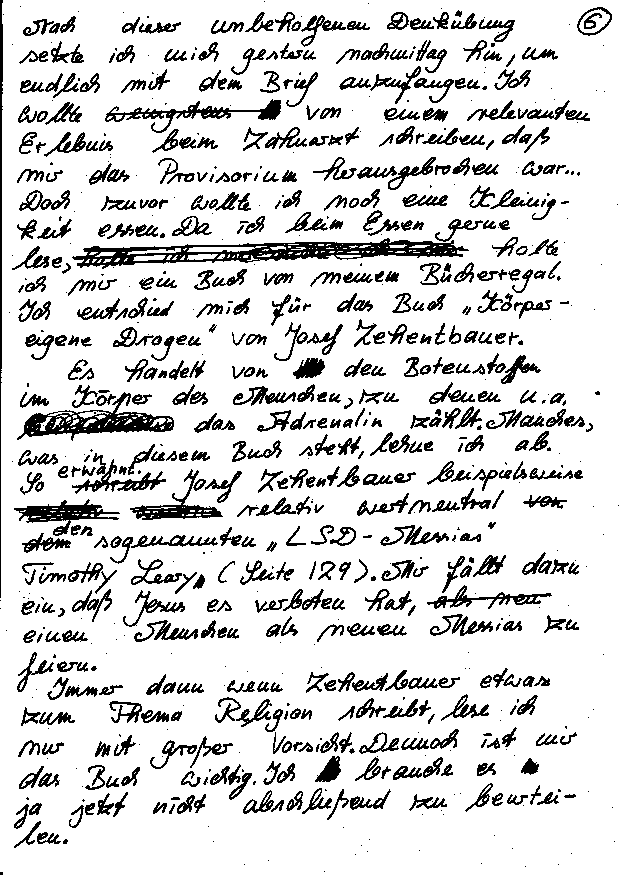 6
Nach dieser unbeholfenen Denkübung
setzte ich mich gestern nachmittag hin, um
endlich mit dem Brief anzufangen. Ich
wollte wenigstens von einem relevanten
Erlebnis beim Zahnarzt schreiben, daß
mir das Provisorium herausgebrochen war...
Doch zuvor wollte ich noch eine Kleinig-
keit essen. Da ich beim Essen gerne
lese, holte
ich mir ein Buch von meinem Bücherregal.
Ich entschied mich für das Buch „Körper-
eigene Drogen" von Josef Zehentbauer.
Es handelt von den Botenstoffen
im Körper des Menschen, zu denen u.a.
das Adrenalin zählt. Manches,
was in diesem Buch steht, lehne ich ab.
So erwähnt schreibt Josef Zehentbauer beispielsweise
relativ wertneutral von
dem den sogenannten „LSD-Messias"
Timothy Leary, (Seite 129). Mir fällt dazu
ein, daß Jesus es verboten hat, als neu
einen Menschen als neuen Messias zu
feiern.
Immer dann wenn Zehentbauer etwas
zum Thema Religion schreibt, lese ich
nur mit großer Vorsicht. Dennoch ist mir
das Buch wichtig. Ich brauche es
ja jetzt nicht abschließend zu beurtei-
len.